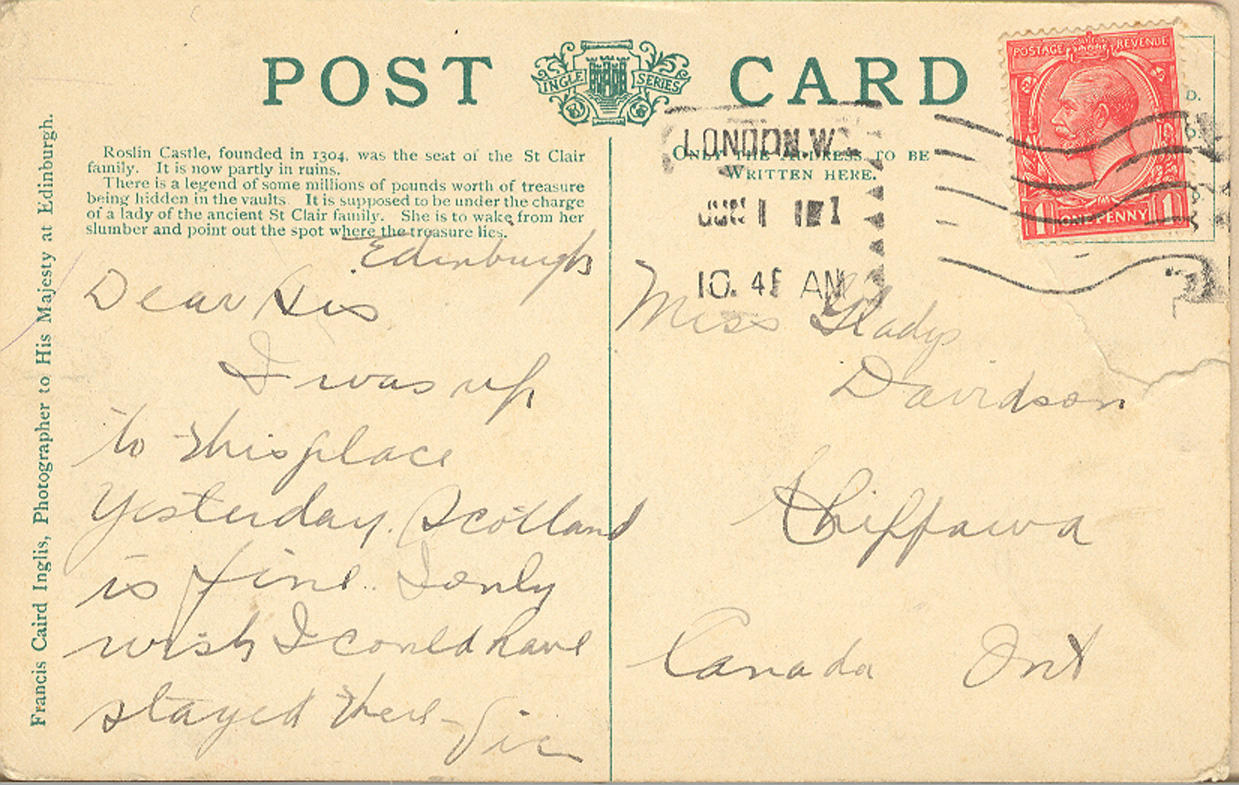 POST CARD
INGLE SERIES
POSTAGE REVENUE
ONE PENNY
1 1
D.
Roslin Castle, founded in 1304, was the seat of the St Clair
family. It is now partly in ruins.
There is a legend of some millions of pounds worth of treasure
being hidden in the vaults. It is supposed to be under the charge
of a lady of the ancient St Clair family. She is to wake from her
slumber and point out the spot where the treasure lies.
Francis Caird Inglis, Photographer to His Majesty at Edinburgh.
Edinburgh
Dear Sis
I was up
to this place
yesterday. Scotland
is fine. I only
wish I could have
stayed there – Vic
LONDON.W.
10. 45 AM
ONLY THE ADDRESS TO BE
WRITTEN HERE.
Miss Gladys
Davidson
Chippawa
Canada Ont